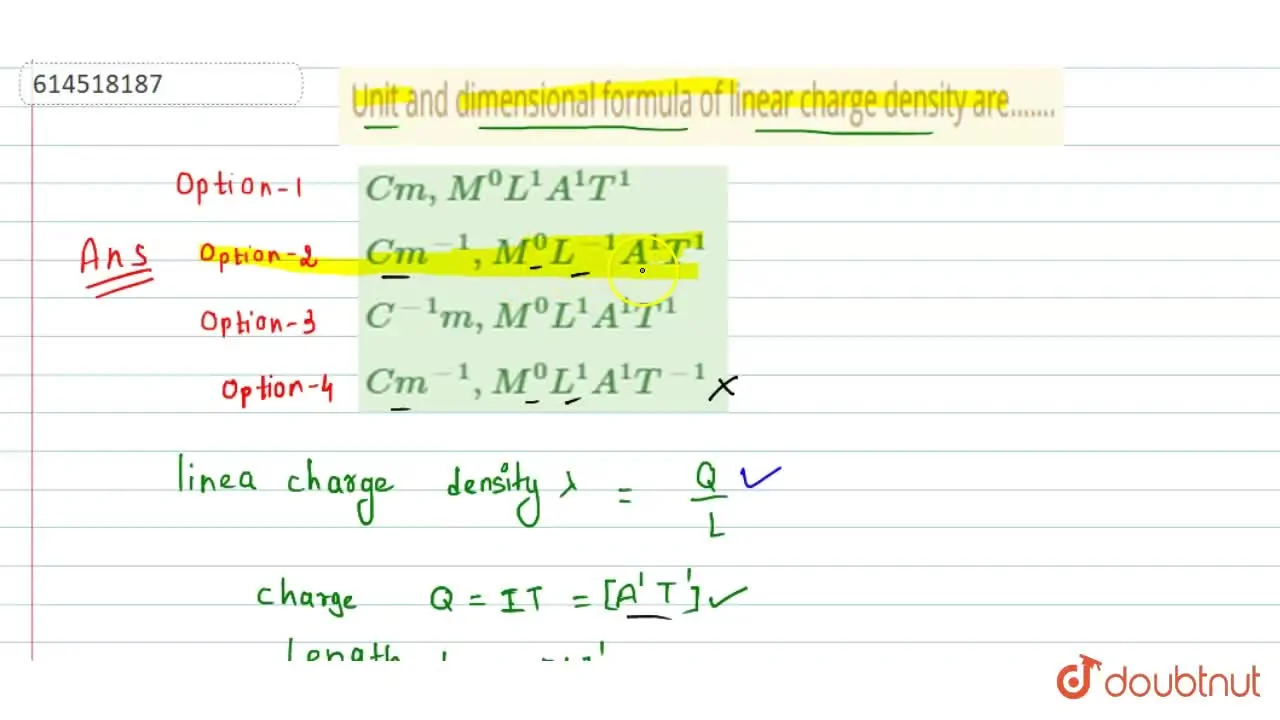 614518187
Unit and dimensional formula of linear charge density are.......
Option-1 Cm, M⁰L¹A¹T¹
Ans Option-2 Cm⁻¹, M⁰L⁻¹A¹T¹
Option-3 C⁻¹m, M⁰L¹A¹T¹
Option-4 Cm⁻¹, M⁰L¹A¹T⁻¹ ×
linea charge density λ = Q/L ✓
charge Q = IT = [A¹ T¹] ✓
length
doubtnut